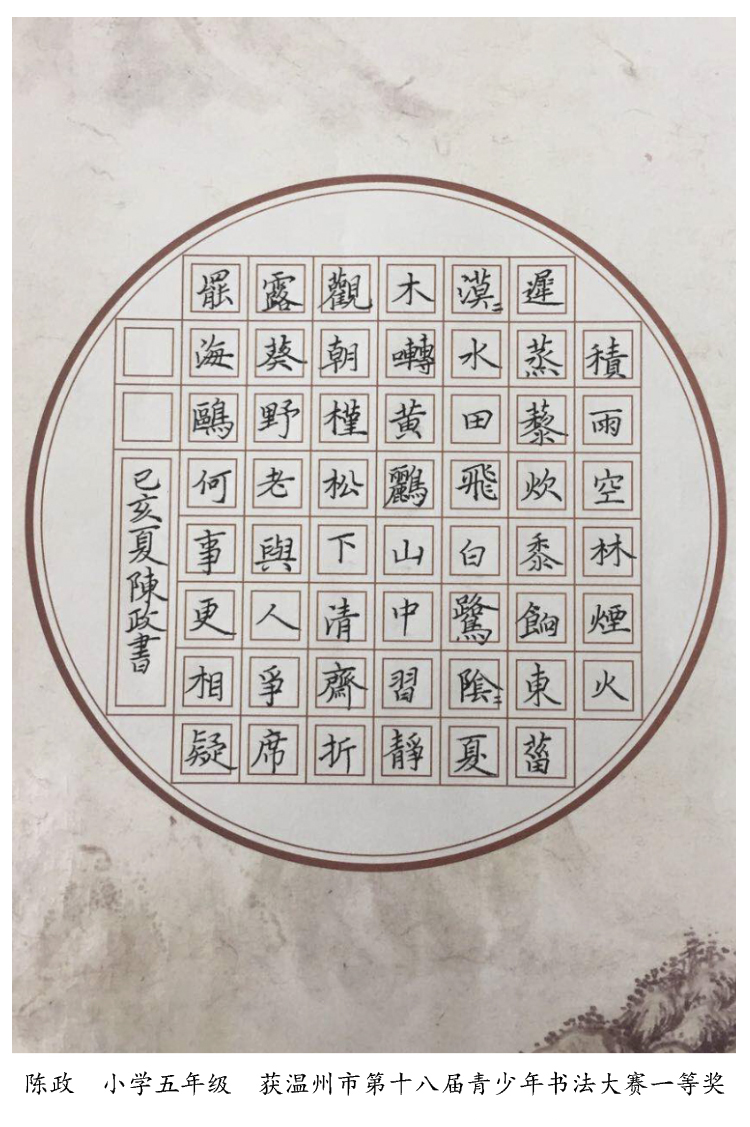 積雨空林煙火
遲蒸藜炊黍餉東菑
漠〻水田飛白鷺陰〻夏
木囀黄鸝山中習靜
觀朝槿松下清齋折
露葵野老與人爭席
罷海鷗何事更相疑
己亥夏陳政書
陈政 小学五年级 获温州市第十八届青少年书法大赛一等奖